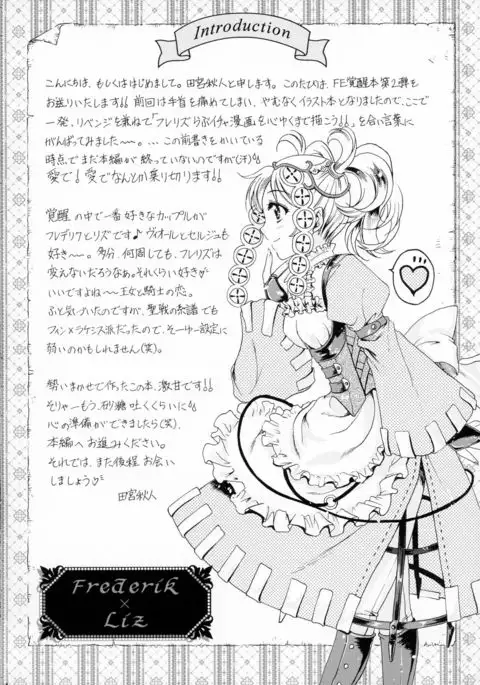 Introduction
こんにちは、もしくははじめまして。田宮秋人と申します。このたびは、FE覚醒本第2弾を
お送りいたします!! 前回は手首を痛めてしまい、やむなくイラスト本となりましたので、ここで
一発、リベンジを兼ねて「フレリズらぶイチャ漫画を心ゆくまで描こう!!」を合い言葉に
がんばってみました〜〜。... この前書きをかいている
時点でまだ本編が終っていないのですが(汗)
愛で!愛でなんとか乗り切ります!!
覚醒の中で一番好きなカップルが
フレデリクとリズです♪ヴィオールとセルジュも
好き〜〜。多分、何周しても、フレリズは
変えないだろうなぁ。それくらい好きが
いいですよね〜王女と騎士の恋。
ふと気づいたのですが、聖戦の系譜でも
フィン×ラケシス派だったので、そーゆー設定に
弱いのかもしれません(笑)。
勢いまかせで作ったこの本、激甘です!!
そりゃーもう、砂糖吐くくらいに!!
心の準備ができましたら(笑)、
本編へお進みください。
それでは、また後程お会い
しましょう♡
田宮秋人
Frederik
×
Liz